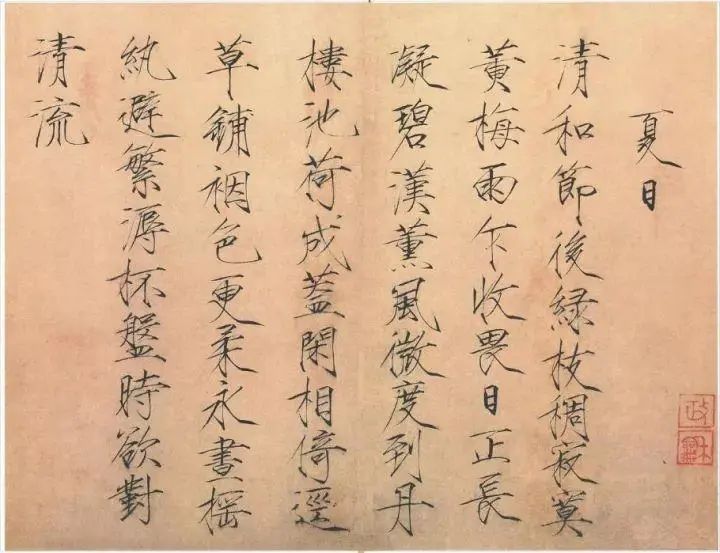 夏日
清和節後緑枝稠寂寞
黄梅雨乍收畏日正長
凝碧漢薰風微度到丹
樓池荷成蓋閑相倚逕
草鋪裀色更柔永晝搖
紈避繁溽杯盤時欲對
清流
政龢